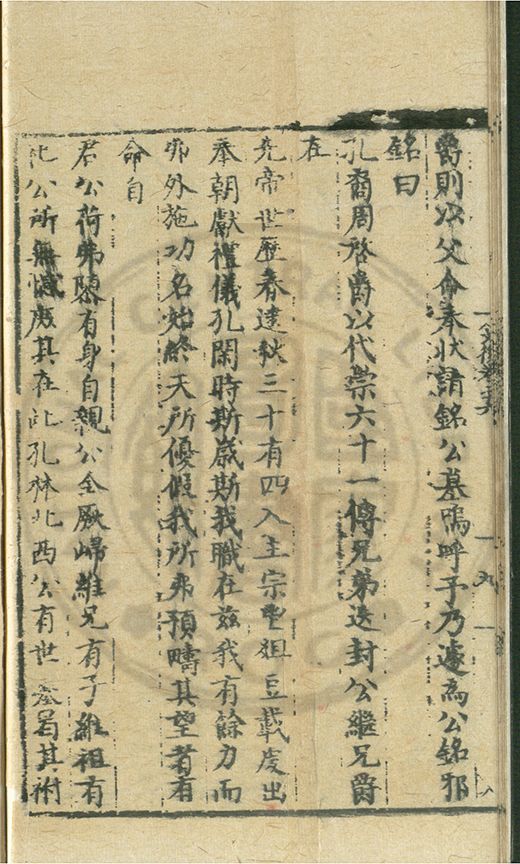 爵則以父命奉狀請銘公墓嗚呼予乃遽為公銘邪
銘曰
孔裔周啓爵以代崇六十一傳兄弟迭封公繼兄爵
在
先帝世歷春逮秋三十有四入主宗聖俎豆載度出
奉朝獻禮儀孔閑時斯歲斯我職在茲我有餘力而
弗外施功名始終天所優假我所弗預疇其望者有
命自
君公荷弗隳有身自親公全厥歸維兄有子維祖有
公所無憾厥其在此孔林北西公有世 其祔